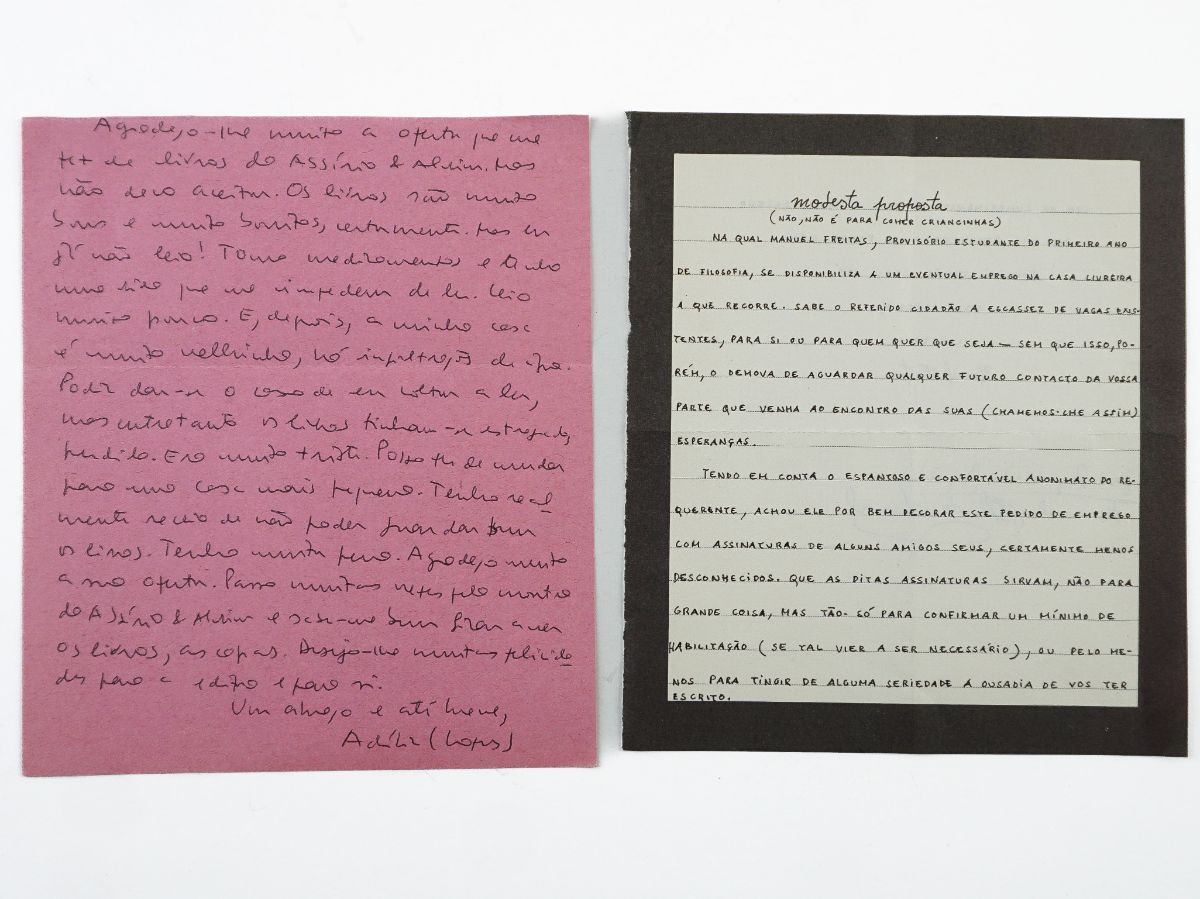 Agradeço-lhe muito a oferta que me
fez de livros da Assírio & Alvim. Mas
não devo aceitar. Os livros são muito
bons e muito bonitos, certamente. Mas eu
já não leio! Tomo medicamentos e tenho
uma vida que me impedem de ler. Leio
muito pouco. E, depois, a minha casa
é muito velhinha, há infiltrações de água.
Podia dar-se o caso de eu voltar a ler,
mas entretanto os livros tinham-se estragado,
perdido. Era muito triste. Posso ter de mudar
para uma casa mais pequena. Tenho real
mente receio de não poder guardar bem
os livros. Tenho muita pena. Agradeço muito
a sua oferta. Passo muitas vezes pela montra
da Assírio & Alvim e sabe-me bem ficar a ver
os livros, as capas. Desejo-lhe muitas felicida
des para a edição e para si.
Um abraço e até breve,
Adília (Lopes)
modesta proposta
(NÃO, NÃO É PARA COMER CRIANCINHAS)
NA QUAL MANUEL FREITAS, PROVISÓRIO ESTUDANTE DO PRIMEIRO ANO
DE FILOSOFIA, SE DISPONIBILIZA A UM EVENTUAL EMPREGO NA CASA LIVREIRA
A QUE RECORRE. SABE O REFERIDO CIDADÃO A ESCASSEZ DE VAGAS EXIS-
TENTES, PARA SI OU PARA QUEM QUER QUE SEJA — SEM QUE ISSO, PO-
RÉM, O DEMOVA DE AGUARDAR QUALQUER FUTURO CONTACTO DA VOSSA
PARTE QUE VENHA AO ENCONTRO DAS SUAS (CHAMEMOS-LHE ASSIM)
ESPERANÇAS.
TENDO EM CONTA O ESPANTOSO E CONFORTÁVEL ANONIMATO DO RE-
QUERENTE, ACHOU ELE POR BEM DECORAR ESTE PEDIDO DE EMPREGO
COM ASSINATURAS DE ALGUNS AMIGOS SEUS, CERTAMENTE MENOS
DESCONHECIDOS. QUE AS DITAS ASSINATURAS SIRVAM, NÃO PARA
GRANDE COISA, MAS TÃO-SÓ PARA CONFIRMAR UM MÍNIMO DE
HABILITAÇÃO (SE TAL VIER A SER NECESSÁRIO), OU PELO ME-
NOS PARA TINGIR DE ALGUMA SERIEDADE A OUSADIA DE VOS TER
ESCRITO.